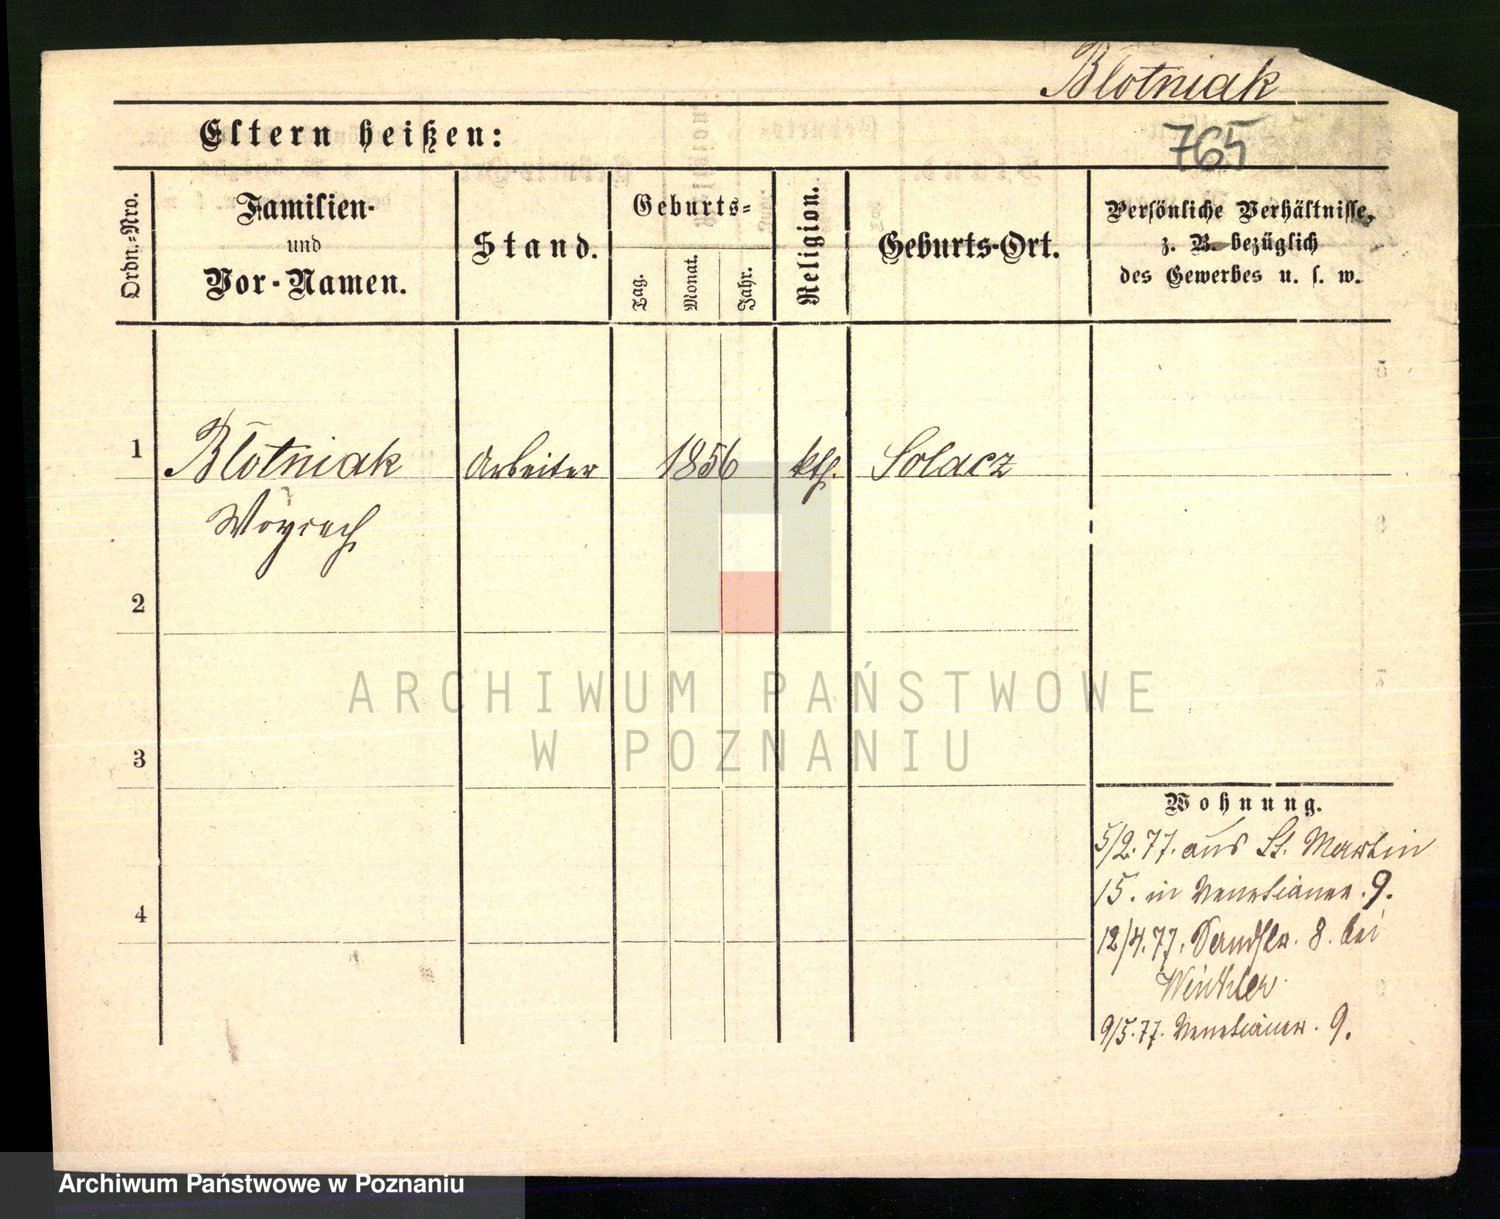 Błotniak
Eltern heißen:
765
Ordn.-Nro.
Familien-
und
Vor-Namen.
Stand.
Geburts-
Tag.
Monat.
Jahr.
Religion.
Geburts-Ort.
Persönliche Verhältnisse,
z. B. bezüglich
des Gewerbes u. s. w.
1
Błotniak
Arbeiter
1856
kth.
Solacz
Woyciech
2
ARCHIWUM PAŃSTWOWE
W POZNANIU
3
Wohnung.
5/2.77. aus St. Martin
15. in Venetianer. 9.
4
12/4.77. 8. bei
9/5.77. Venetianer. 9.
Archiwum Państwowe w Poznaniu